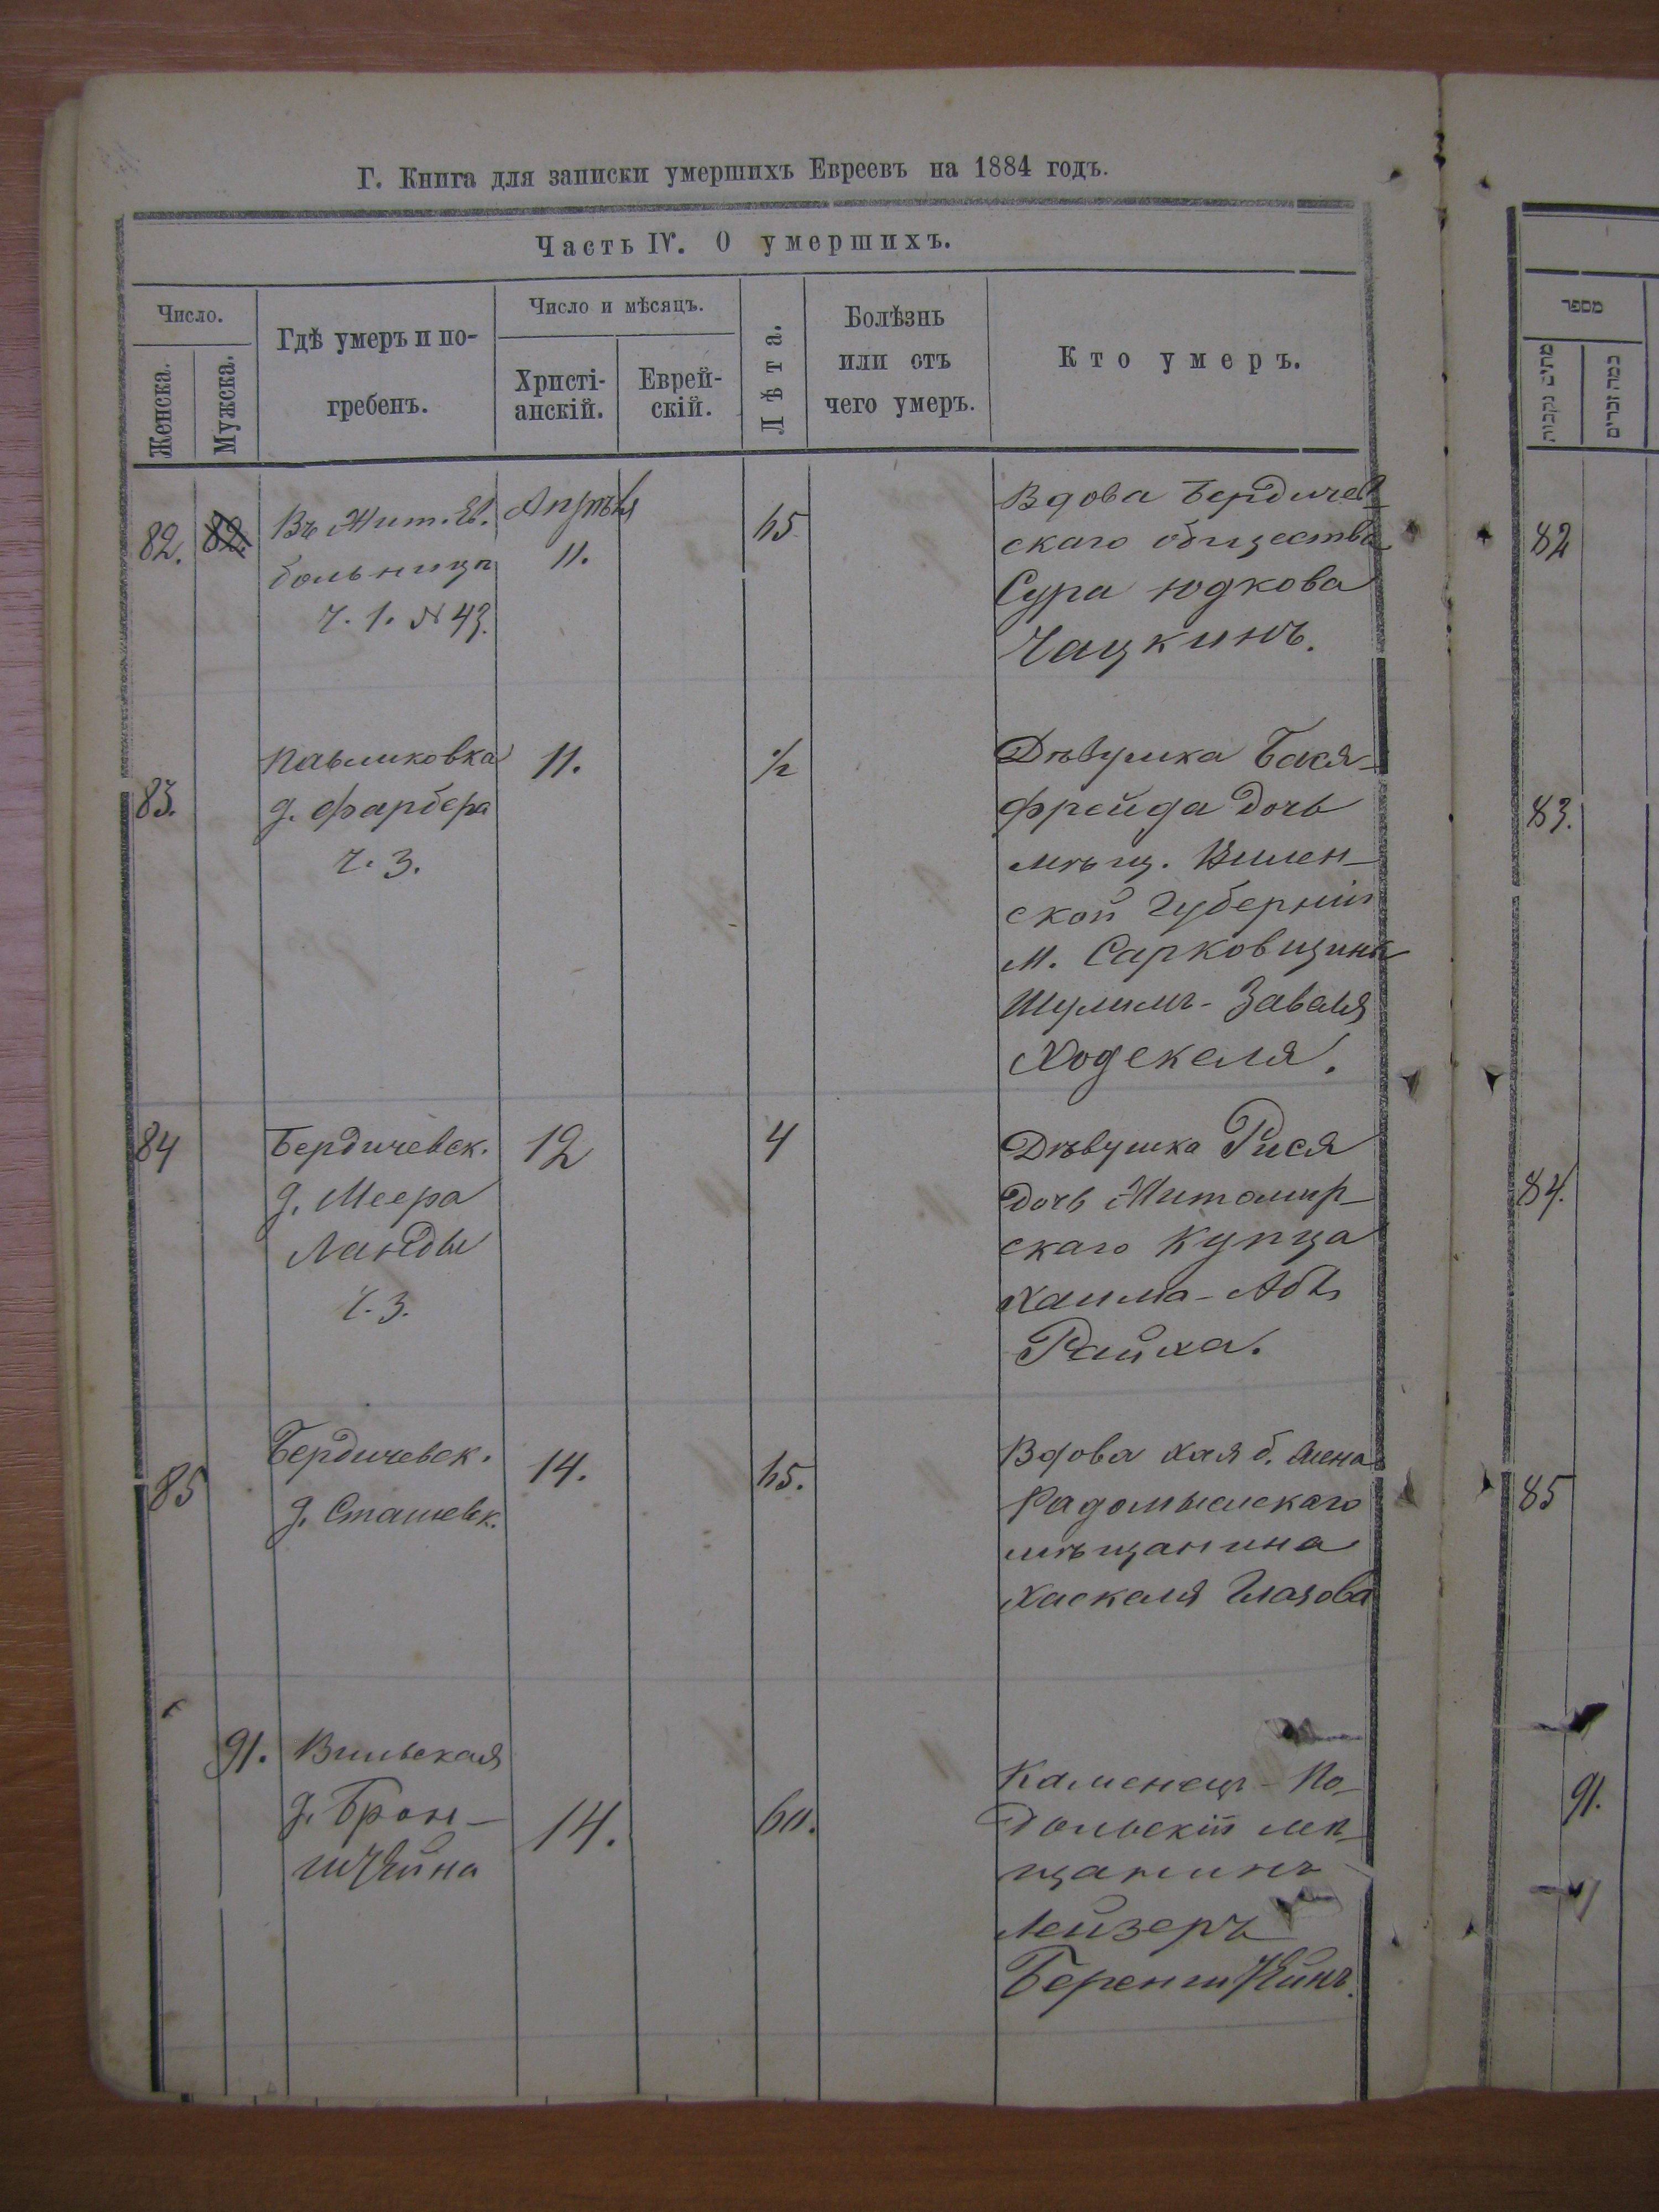 Г. Книга для записки умершихъ Евреевъ на 1884 годъ.
Часть IV. О умершихъ.
Число.
Женска.
Мужска.
Гдѣ умеръ и по-
гребенъ.
Число и мѣсяцъ.
Христі-
анскій.
Еврей-
скій.
Лѣта.
Болѣзнь
или отъ
чего умеръ.
Кто умеръ.
82.
82.
Въ Жит. Ев.
больницѣ
ч. 1. № 43.
Апрѣля
11.
65
Вдова Бердичев-
скаго общества
Сура Юдкова
Чацкинъ.
83.
Павликовка
д. Фарбера
ч. 3.
11.
1/2
Дѣвушка Бася-
Фрейда дочь
мѣщ. Вилен-
ской Губерніи
м. Сарковщинк
Шулимъ-Завеля
Ходекеля.
84
Бердичевск.
д. Меера
Ланды
ч. 3.
12
4
Дѣвушка Рися
дочь Житомир-
скаго Купца
Хаима-Аба
Райха.
85
Бердичевск.
д. Сташевск.
14.
65.
Вдова Хая б. жена
Радомысльскаго
мѣщанина
Хаскеля Глозова
91.
Вильская
д. Брон-
штейна
14.
60.
Каменецъ-По-
дольскій мѣ-
щанинъ
Лейзеръ
Беренштейнъ.
מספר
מתים נקבות
כמה זכרים
82
83.
84.
85
91.